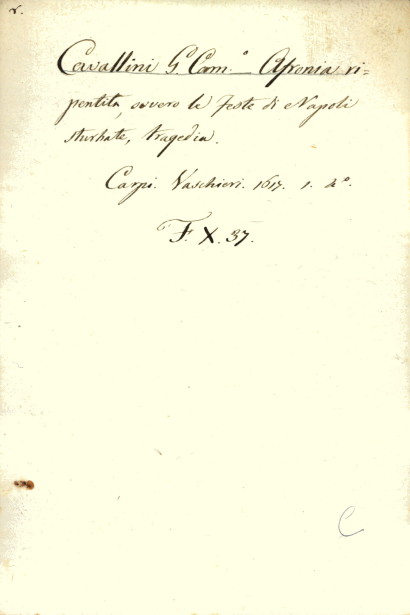 r.
Cavallini G. Cam.º Afronia ri=
pentita, ovvero le feste di Napoli
sturbate, tragedia.
Carpi. Vaschieri. 1617. 1. 4º.
F. X. 37.
C